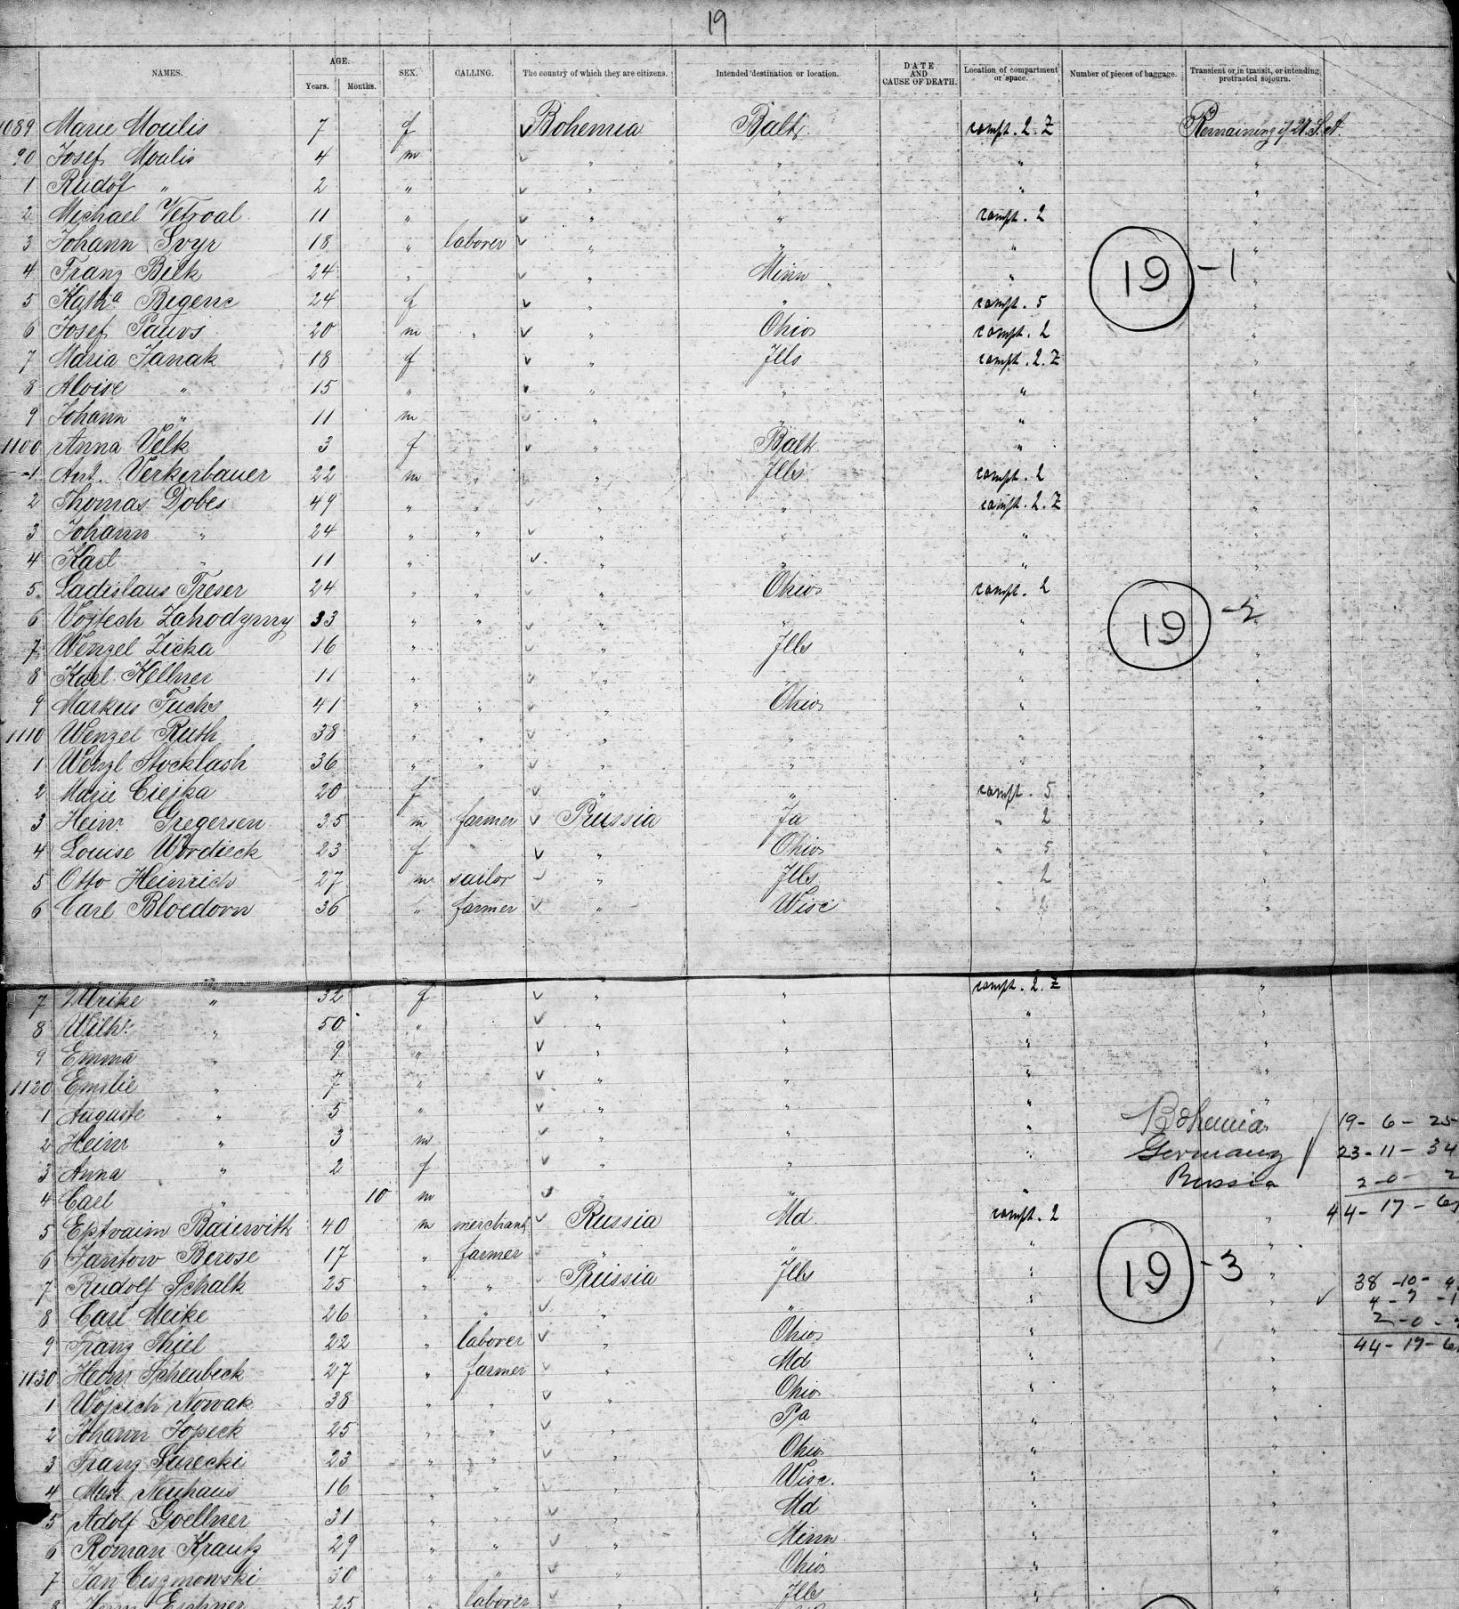 19
NAMES. AGE. Years. Months. SEX. CALLING. The country of which they are citizens. Intended destination or location. DATE AND CAUSE OF DEATH. Location of compartment or space. Number of pieces of baggage. Transient or in transit, or intending protracted sojourn.
1089 Marie Moulis 7 f Bohemia Balt. compt. 2. Z Remaining
90 Josef Moulis 4 m " " " "
1 Rudof " 2 " " " " "
2 Michael Vetroal 11 " " " compt. 2 "
3 Johann Svyr 18 " laborer " " " "
19 -1
4 Franz Bilk 24 " " Minn " "
5 Kath.a Regenc 24 f " " compt. 5 "
6 Josef Pauvs 20 m " " Ohio compt. 2 "
7 Maria Janak 18 f " Ills compt. 2. Z "
8 Aloise " 15 " " " " "
9 Johann " 11 m " " " "
1100 Anna Velk 3 f " Balt. " "
-1 Ant. Verkerbauer 22 m " " Ills compt. 2 "
2 Thomas Dobes 49 " " " " compt. 2. Z "
3 Johann " 24 " " " " " "
4 Karl " 11 " " " " "
5 Ladislaus Treser 24 " " " Ohio compt. 2 "
6 Vojtech Zahodgmy 33 " " " " " "
19 -2
7 Wenzel Zicka 16 " " Ills " "
8 Karl Kellner 11 " " " " "
9 Markus Fuchs 41 " " " Ohio " "
1110 Wenzel Ruth 38 " " " " " "
1 Wenzl Stocklash 36 " " " " " "
2 Marie Ciejka 20 f " " compt. 5 "
3 Heinr. Gregersen 35 m farmer Prussia Ja " 2 "
4 Louise Wordieck 23 f " Ohio " 5 "
5 Otto Heinrich 27 m sailor " Ills " 2 "
6 Carl Bloedorn 36 " farmer " Wisc " "
7 Ulrike " 32 f " " compt. 2. Z "
8 Wilh. " 50 " " " " "
9 Emma " 9 " " " " "
1120 Emilie " 7 " " " " "
1 Auguste " 5 " " " " "
Bohemia 19 - 6 - 25
2 Heinr " 3 m " " " "
Germany 23 - 11 - 34
3 Anna " 2 f " " " "
Russia 2 - 0 - 2
4 Carl " 10 m " " " "
44 - 17 - 61
5 Eptraim Baierwith 40 m merchant Russia Md compt. 2 "
6 Jantow Berose 17 " farmer " " " "
19 -3
7 Rudolf Schalk 25 " " Prussia Ills " "
38 - 10 -
8 Carl Meike 26 " " " " " "
4 - 7 - 1
2 - 0 -
9 Franz Thiel 22 " laborer " Ohio " "
44 - 17 - 6
1130 Heinr Scheubeck 27 " farmer " Md " "
1 Wojcich Nowak 38 " " " Ohio " "
2 Johann Jopeck 25 " " " Pa " "
3 Franz Surecki 23 " " " Ohio " "
4 Max Neuhaus 16 " " " Wisc. " "
5 Adolf Goellner 31 " " " Md " "
6 Roman Krautz 29 " " " Minn " "
7 Jan Ciszmowski 30 " " " Ohio " "
8 Herm Eschner 25 laborer Ills